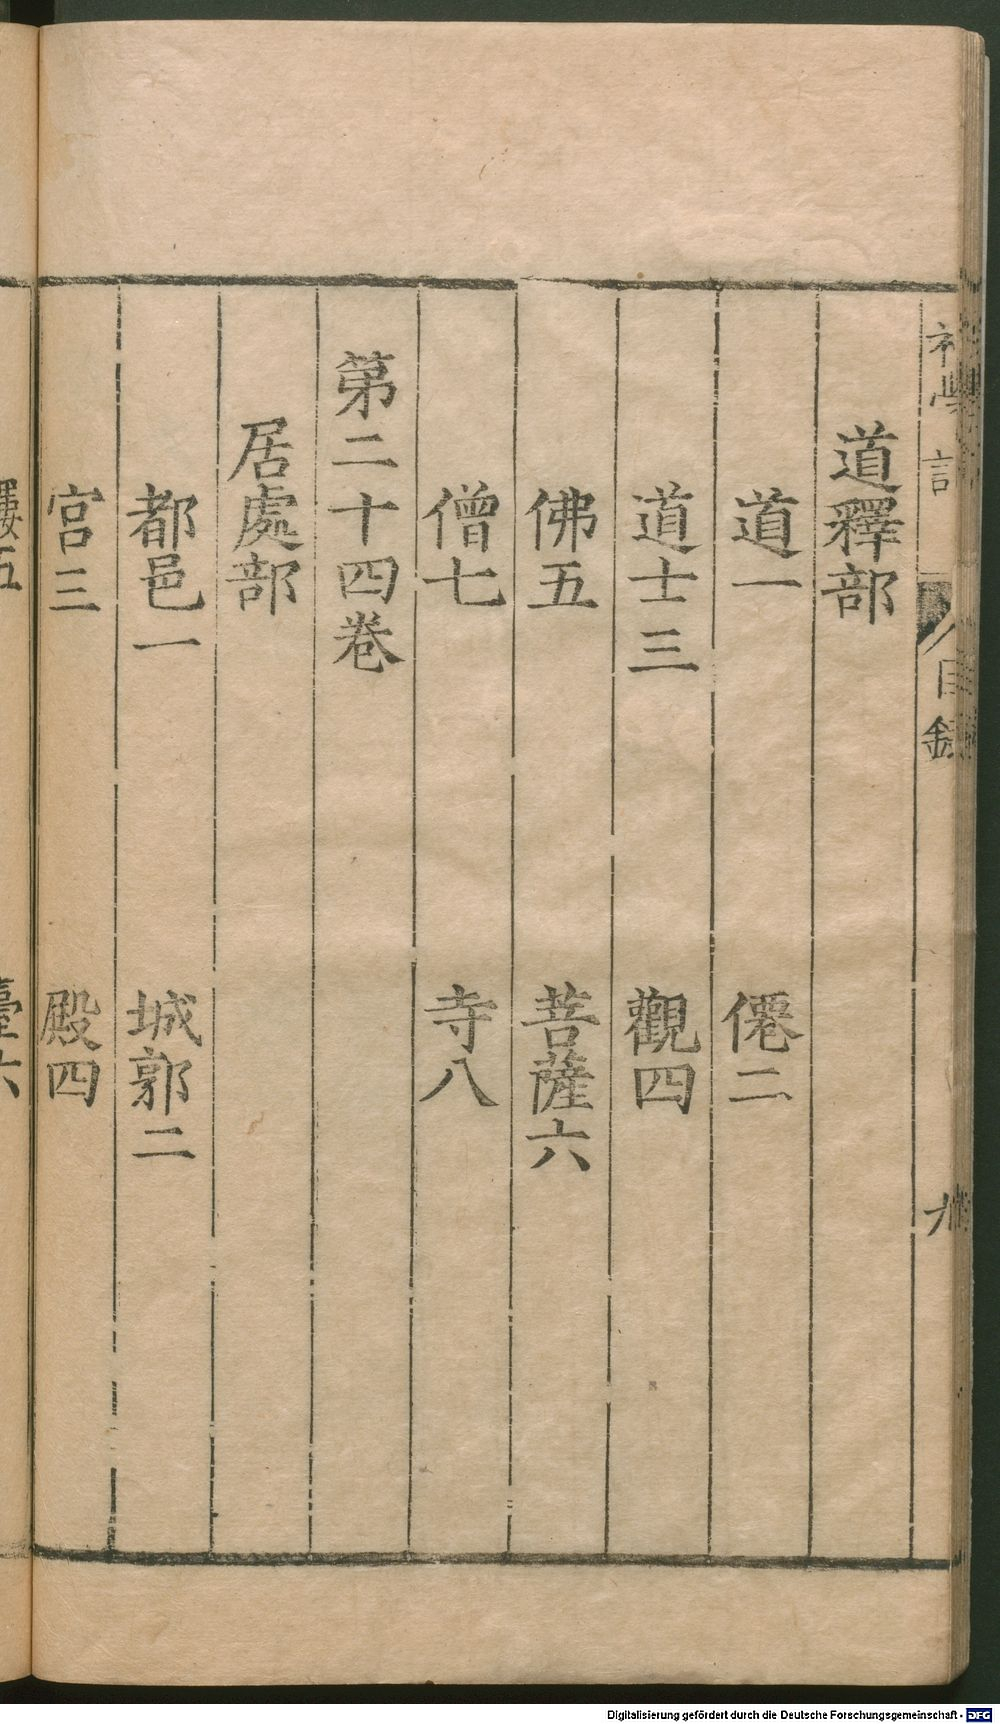 目錄
道釋部
道一 僊二
道士三 觀四
佛五 菩薩六
僧七 寺八
第二十四卷
居處部
都邑一 城郭二
宮三 殿四
Digitalisierung gefördert durch die Deutsche Forschungsgemeinschaft - DFG